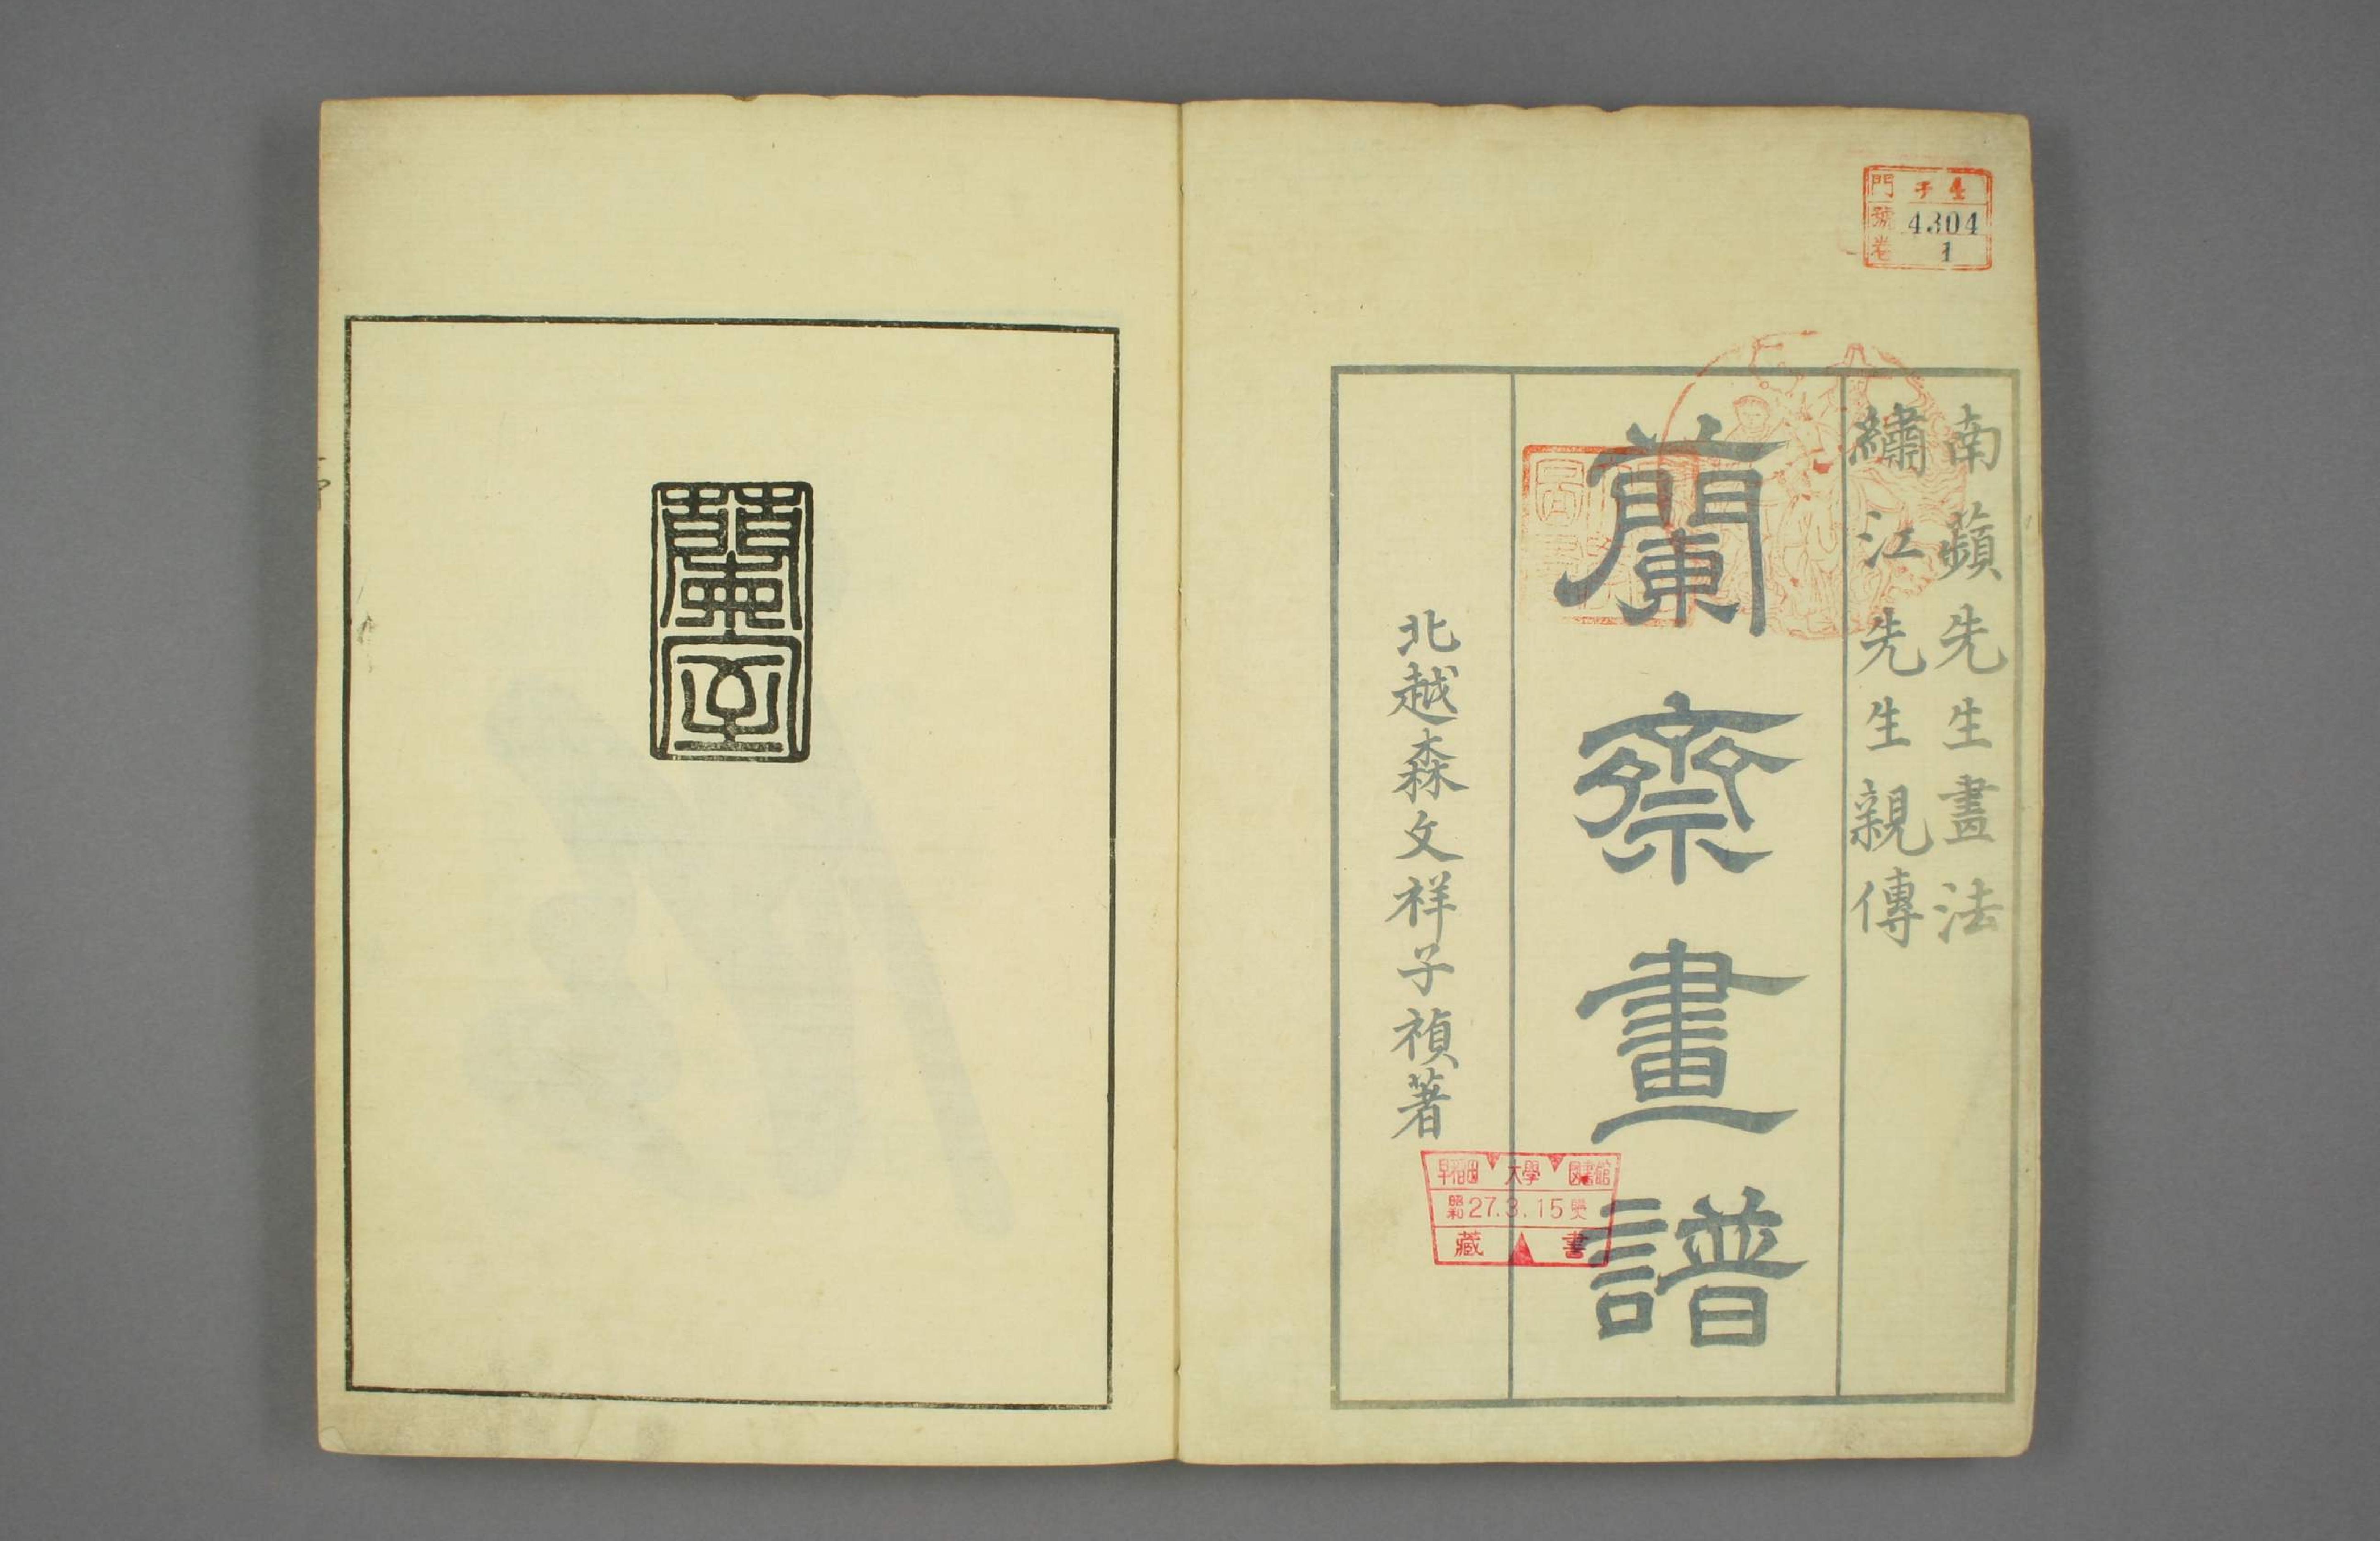 門 チ 4
號 4304
卷 1
南蘋先生畫法
繡江先生親傳
蘭齋畫譜
北越森文祥子禎著
早稻田大學圖書館
昭和27.3.15
藏書
蘭室